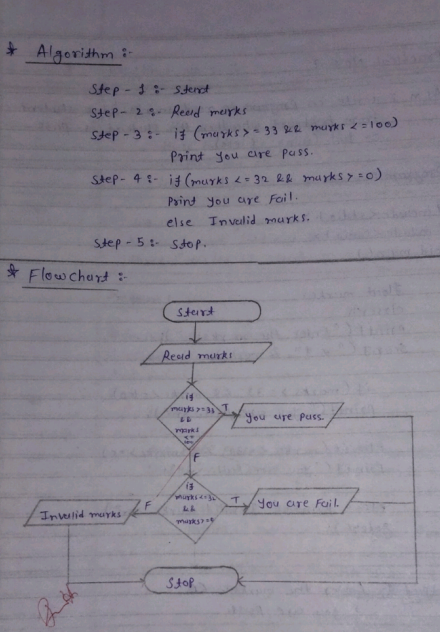 * Algorithm :-
Step - 1 :- Start
Step - 2 :- Read marks
Step - 3 :- if (marks >= 33 && marks <=100)
Print you are pass.
Step - 4 :- if (marks <= 32 && marks >=0)
Print you are Fail.
else Invalid marks.
Step - 5 :- Stop.
* Flowchart :-
Start
Read marks
if
marks >= 33
&&
marks
<=
100
T
You are pass
F
if
marks <= 32
&&
marks >= 0
T
You are Fail.
F
Invalid marks.
Stop